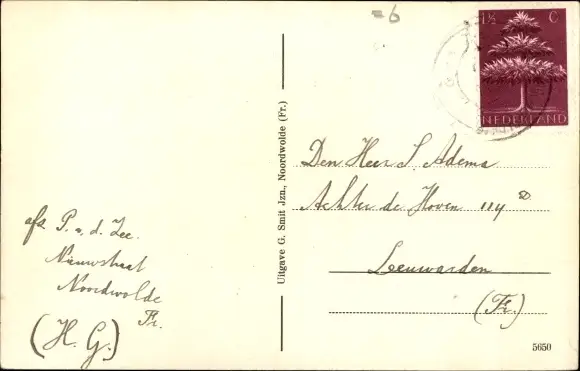 =6
1½ C
NEDERLAND
Den Heer S. Adema
Achter de Hoven 114
Leeuwarden
(Fr.)
Uitgave G. Smit Jzn., Noordwolde (Fr.)
afz. P. v. d. Zee.
Nieuwstraat
Noordwolde
Fr.
(H. G.)
5650